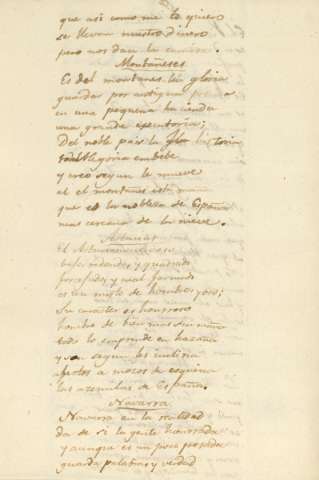 que así como me lo quiero
se llevan nuestro dinero
pero nos dan la
Montañeses
Es del montañes la gloria
guarda por antigua
en una pequeña hacienda
una grande executoria;
Del noble pais la historia
embebe
y creo segun le mueve
el montañes
que es la nobleza de España
mas cercana de la nieve.
Asturias
El Asturiano
bajo, redondo, y quadrado
y mal formado
es un mixto de hombre y oso;
Su caracter es honroso
hombre de bien mas sin maña
todo lo emprende en hazaña
y segun les inclina
aptos a mozos de esquina
las azemilas de España.
Navarra
Navarra en la realidad
da de si la gente honrrada
y aunque es un poco pesada
guarda palabras y verdad